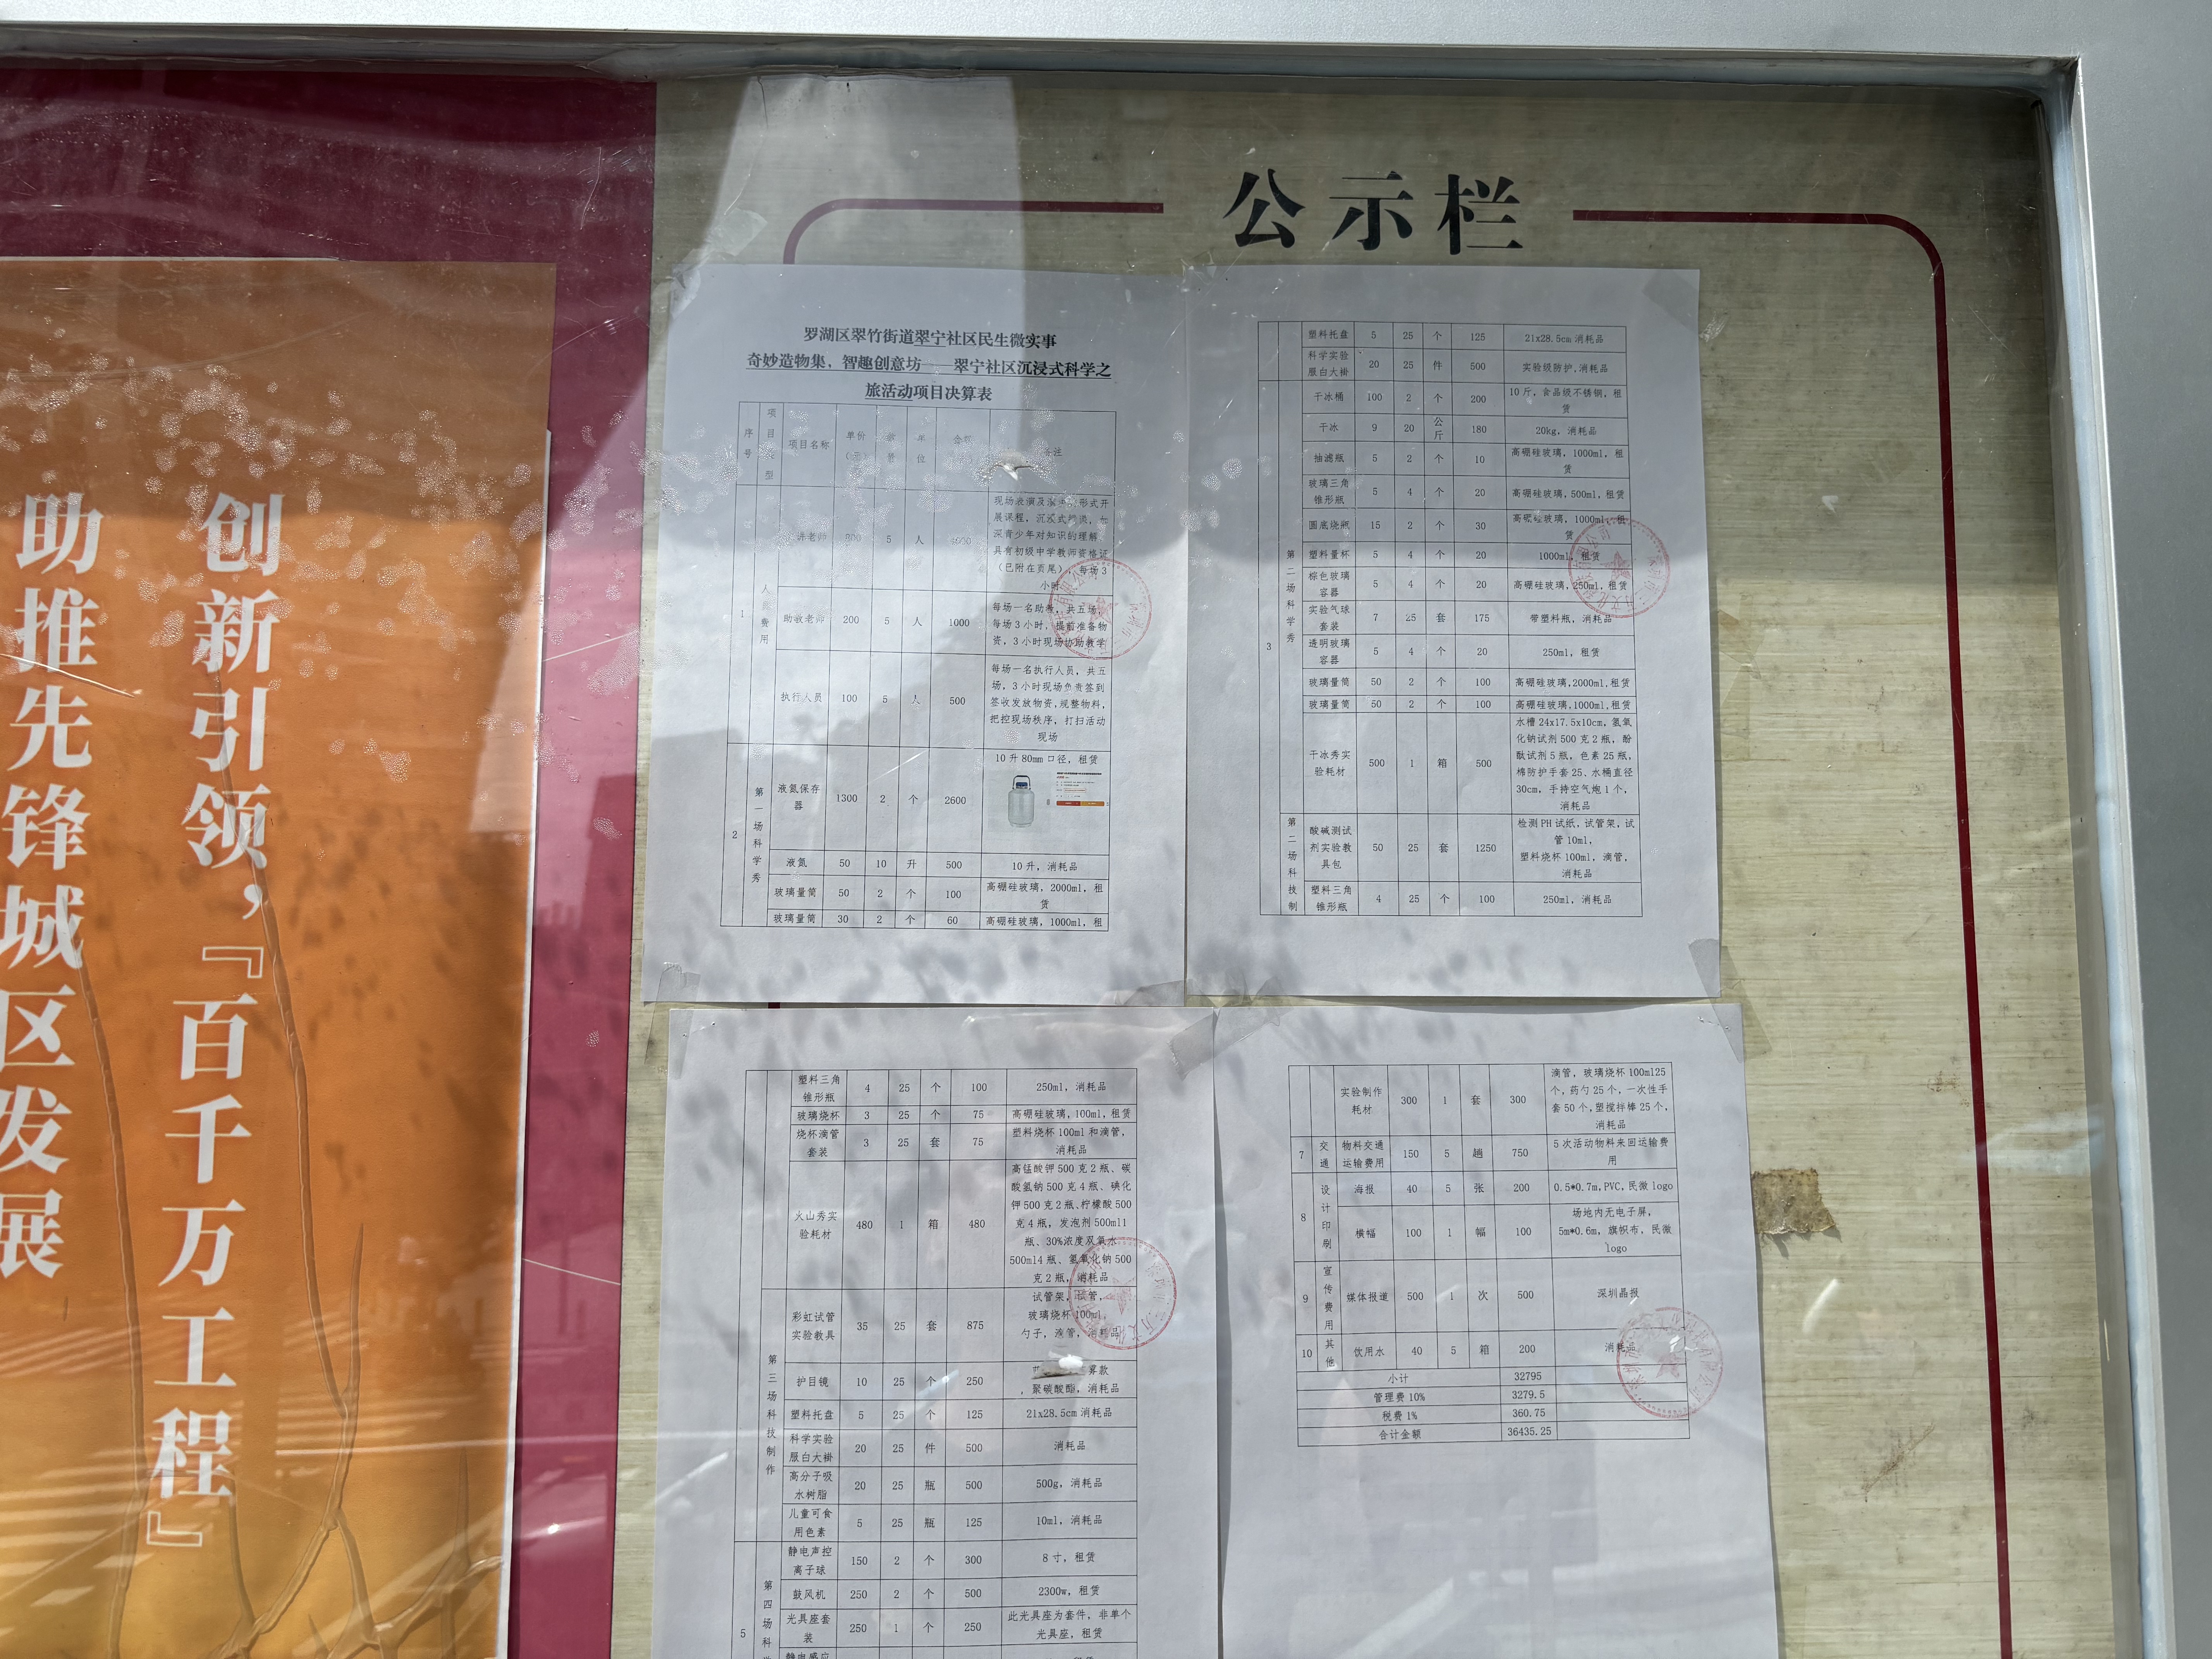 公示栏
创新引领，『百千万工程』
助推先锋城区发展
罗湖区翠竹街道翠宁社区民生微实事
奇妙造物集，智趣创意坊——翠宁社区沉浸式科学之
旅活动项目决算表
序号 项目 型 项目名称 单价 位
1 人 费用 讲老师 5 人
现场表演及 形式开
展课程，沉浸式
深青少年对知识的理解
具有初级中学教师资格证
（已附在页尾），每场3
小时
助教老师 200 5 人 1000
每场一名助教，共五场，
每场3小时，提前准备物
资，3小时现场协助教学
执行人员 100 5 人 500
每场一名执行人员，共五
场，3小时现场负责签到
签收发放物资，规整物料，
把控现场秩序，打扫活动
现场
2 第一场科学秀 液氮保存器 1300 2 个 2600 10升80mm口径，租赁
液氮 50 10 升 500 10升，消耗品
玻璃量筒 50 2 个 100 高硼硅玻璃，2000ml，租赁
玻璃量筒 30 2 个 60 高硼硅玻璃，1000ml，租
塑料托盘 5 25 个 125 21x28.5cm消耗品
科学实验服白大褂 20 25 件 500 实验级防护,消耗品
3 第二场科学秀 干冰桶 100 2 个 200 10斤，食品级不锈钢，租赁
干冰 9 20 公斤 180 20kg，消耗品
抽滤瓶 5 2 个 10 高硼硅玻璃，1000ml，租赁
玻璃三角锥形瓶 5 4 个 20 高硼硅玻璃，500ml，租赁
圆底烧瓶 15 2 个 30 高硼硅玻璃，1000ml，租赁
塑料量杯 5 4 个 20 1000ml，租赁
棕色玻璃容器 5 4 个 20 高硼硅玻璃，250ml，租赁
实验气球套装 7 25 套 175 带塑料瓶，消耗品
透明玻璃容器 5 4 个 20 250ml，租赁
玻璃量筒 50 2 个 100 高硼硅玻璃,2000ml,租赁
玻璃量筒 50 2 个 100 高硼硅玻璃,1000ml,租赁
干冰秀实验耗材 500 1 箱 500
水槽24x17.5x10cm，氢氧
化钠试剂500克2瓶，酚
酞试剂5瓶，色素25瓶，
棉防护手套25，水桶直径
30cm，手持空气炮1个，
消耗品
第二场科技制 酸碱测试剂实验教具包 50 25 套 1250
检测PH试纸，试管架，试
管10ml，
塑料烧杯100ml，滴管，
消耗品
塑料三角锥形瓶 4 25 个 100 250ml，消耗品
塑料三角锥形瓶 4 25 个 100 250ml，消耗品
玻璃烧杯 3 25 个 75 高硼硅玻璃，100ml，租赁
烧杯滴管套装 3 25 套 75 塑料烧杯100ml和滴管，消耗品
火山秀实验耗材 480 1 箱 480
高锰酸钾500克2瓶、碳
酸氢钠500克4瓶、碘化
钾500克2瓶、柠檬酸500
克4瓶，发泡剂500ml1
瓶、30%浓度双氧水
500ml4瓶、氢氧化钠500
克2瓶，消耗品
第三场科技制作 彩虹试管实验教具 35 25 套 875
试管架，试管，
玻璃烧杯100ml，
勺子，滴管，消耗品
护目镜 10 25 个 250 雾款，聚碳酸酯，消耗品
塑料托盘 5 25 个 125 21x28.5cm消耗品
科学实验服白大褂 20 25 件 500 消耗品
高分子吸水树脂 20 25 瓶 500 500g，消耗品
儿童可食用色素 5 25 瓶 125 10ml，消耗品
5 第四场科 静电声控离子球 150 2 个 300 8寸，租赁
鼓风机 250 2 个 500 2300w，租赁
光具座套装 250 1 个 250 此光具座为套件，非单个光具座，租赁
静电感应
实验制作耗材 300 1 套 300
滴管，玻璃烧杯100ml25
个，药勺25个，一次性手
套50个，塑搅拌棒25个，
消耗品
7 交通 物料交通运输费用 150 5 趟 750 5次活动物料来回运输费用
8 设计印刷 海报 40 5 张 200 0.5*0.7m,PVC,民微logo
横幅 100 1 幅 100 场地内无电子屏，5m*0.6m，旗帜布，民微logo
9 宣传费用 媒体报道 500 1 次 500 深圳晶报
10 其他 饮用水 40 5 箱 200 消耗品
小计 32795
管理费10% 3279.5
税费1% 360.75
合计金额 36435.25